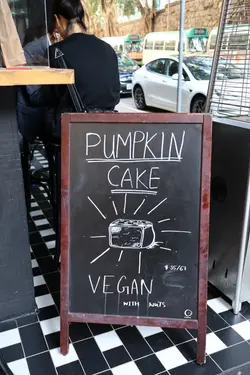 PUMPKIN
CAKE
$35/67
VEGAN
WITH NUTS